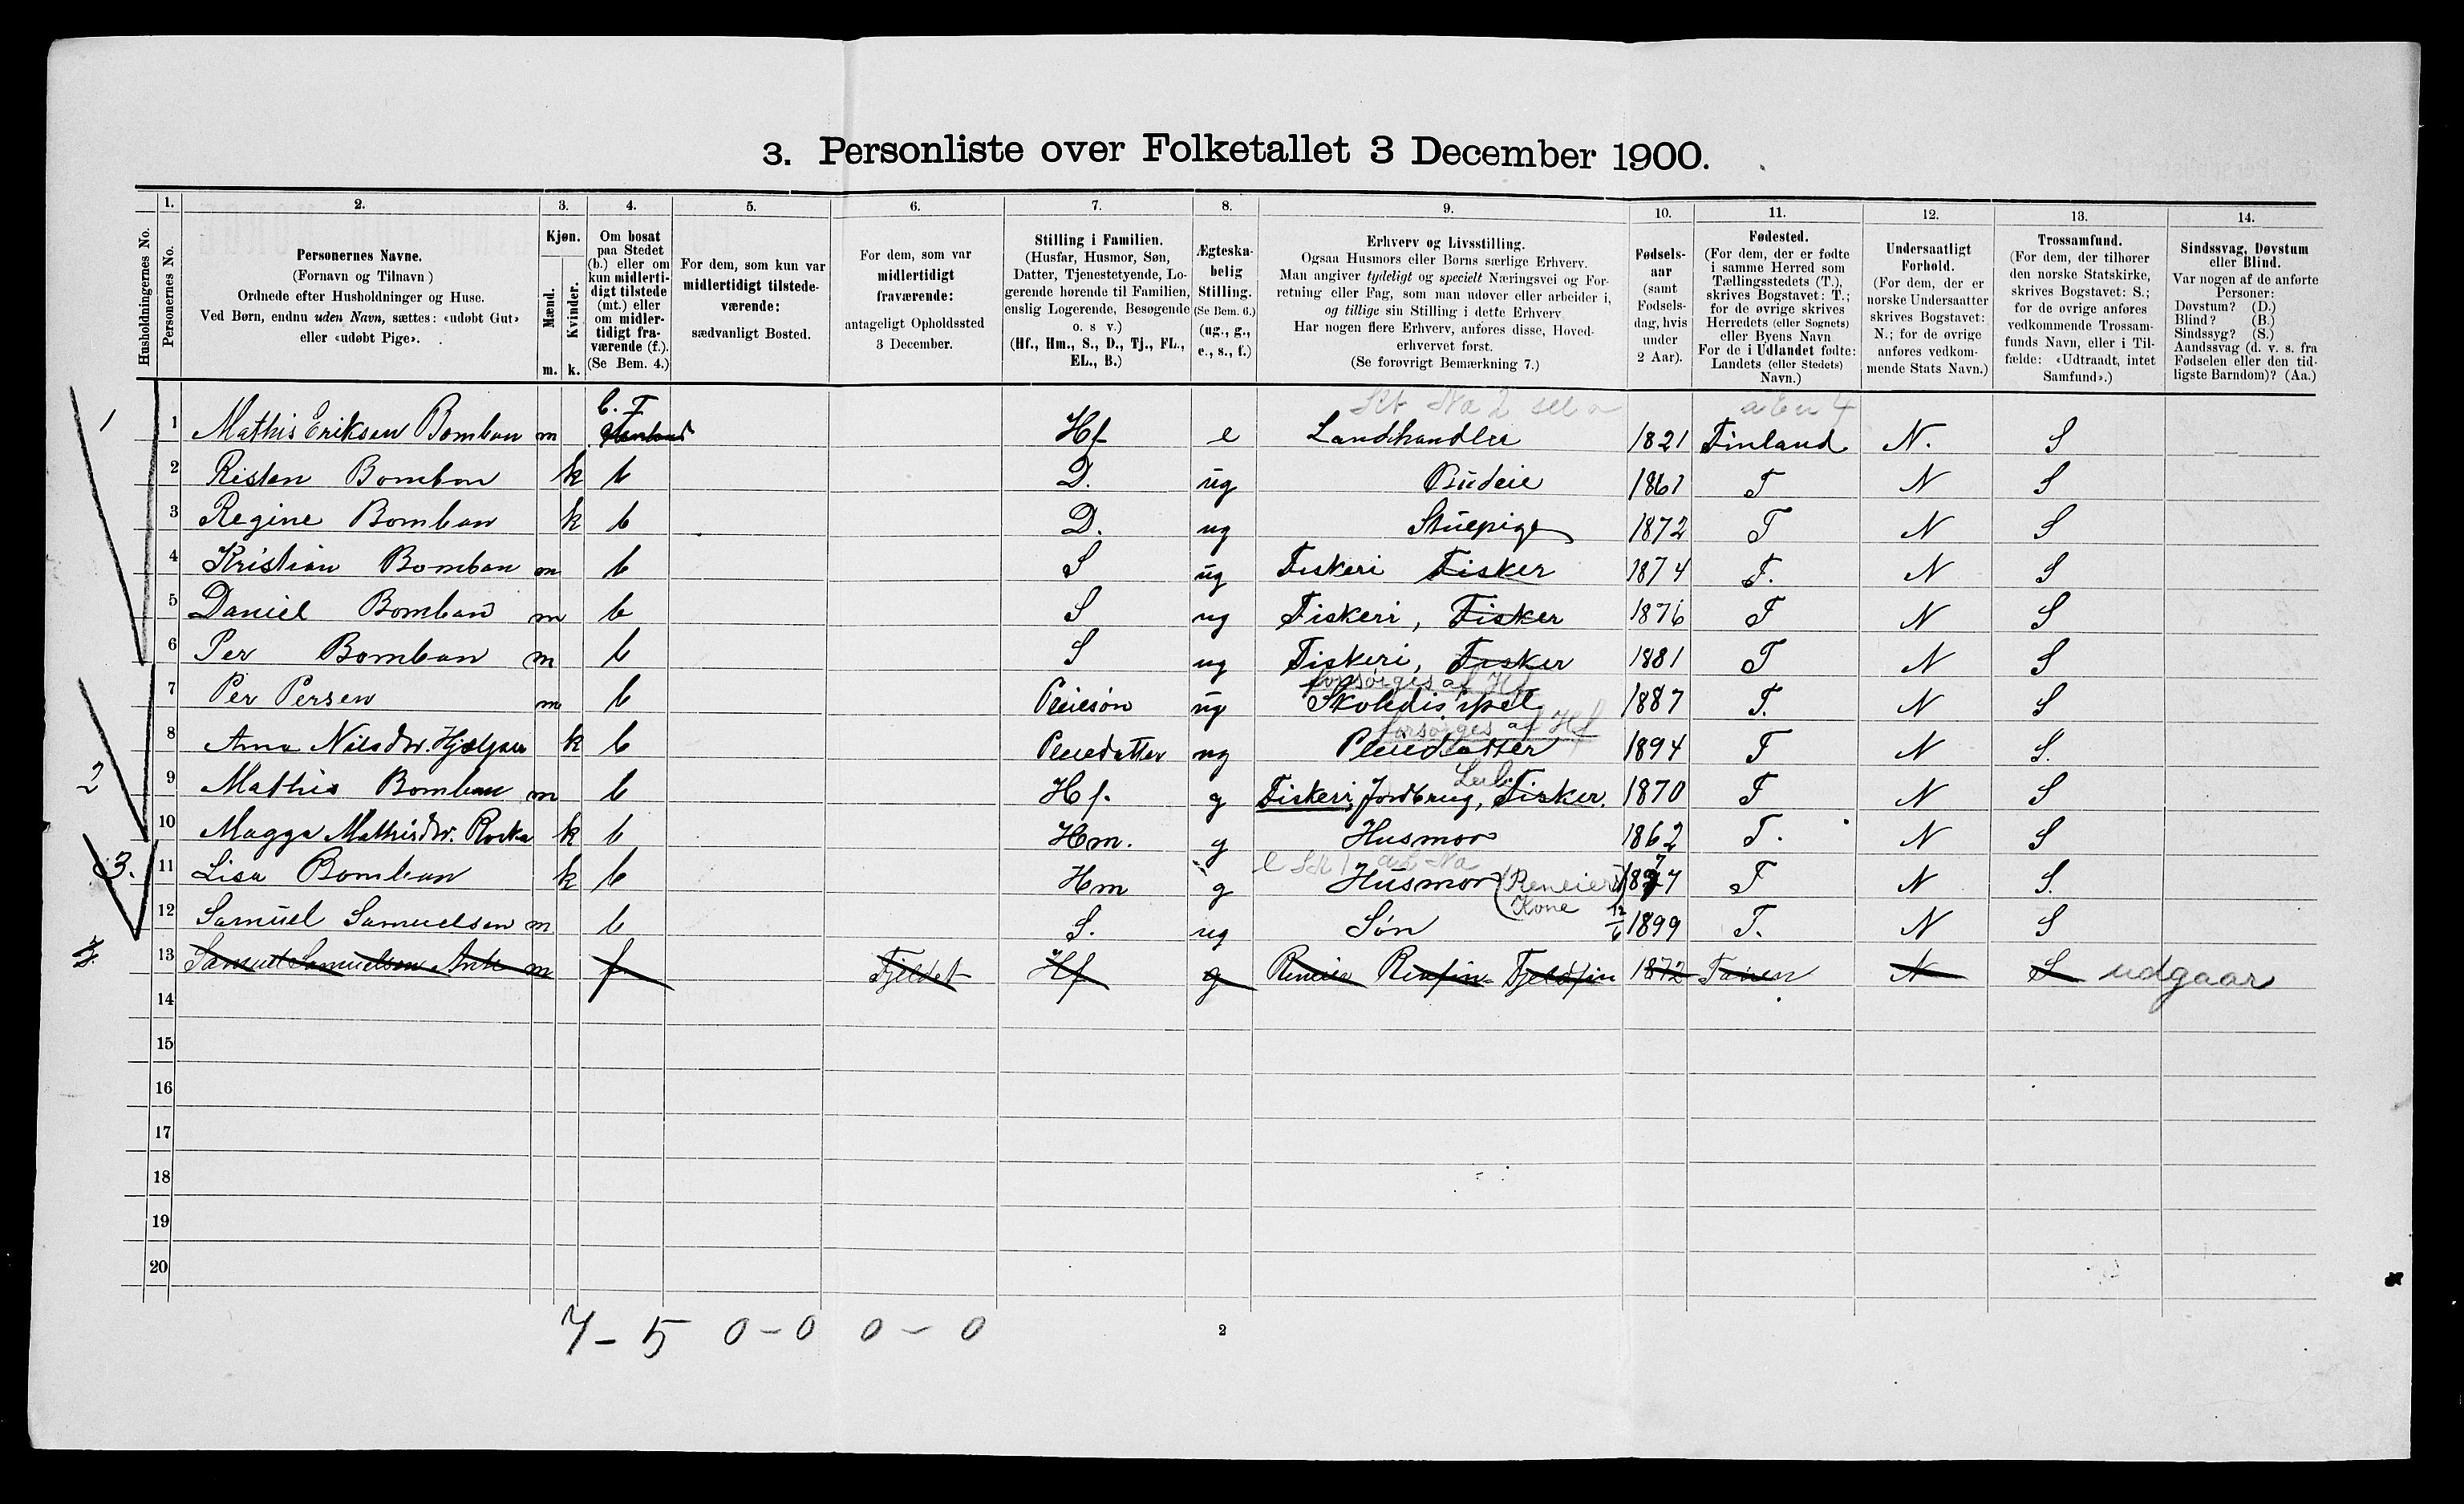 3. Personliste over Folketallet 3 December 1900.
1. 2. 3. 4. 5. 6. 7. 8. 9. 10. 11. 12. 13. 14.
Husholdningernes No.
Personernes No.
Personernes Navne.
(Fornavn og Tilnavn)
Ordnede efter Husholdninger og Huse.
Ved Børn, endnu uden Navn, sættes: «udøbt Gut»
eller «udøbt Pige».
Kjøn.
Mænd.
Kvinder.
m. k.
Om bosat
paa Stedet
(b.) eller om
kun midlerti-
digt tilstede
(mt.) eller
om midler-
tidigt fra-
værende (f.).
(Se Bem. 4.)
For dem, som kun var
midlertidigt tilstede-
værende:
sædvanligt Bosted.
For dem, som var
midlertidigt
fraværende:
antageligt Opholdssted
3 December.
Stilling i Familien.
(Husfar, Husmor, Søn,
Datter, Tjenestetyende, Lo-
gerende hørende til Familien,
enslig Logerende, Besøgende
o. s v.)
(Hf., Hm., S., D., Tj., FL.,
EL., B.)
Ægteska-
belig
Stilling.
(Se Bem. 6.)
(ug., g.,
e., s., f.)
Erhverv og Livsstilling.
Ogsaa Husmors eller Børns særlige Erhverv.
Man angiver tydeligt og specielt Næringsvei og For-
retning eller Fag, som man udøver eller arbeider i,
og tillige sin Stilling i dette Erhverv.
Har nogen flere Erhverv, anføres disse, Hoved-
erhvervet først.
(Se forøvrigt Bemærkning 7.)
Fødsels-
aar
(samt
Fødsels-
dag, hvis
under
2 Aar).
Fødested.
(For dem, der er fødte
i samme Herred som
Tællingsstedets (T.),
skrives Bogstavet: T.;
for de øvrige skrives
Herredets (eller Sognets)
eller Byens Navn
For de i Udlandet fødte:
Landets (eller Stedets)
Navn.)
Undersaatligt
Forhold.
(For dem, der er
norske Undersaatter
skrives Bogstavet:
N.; for de øvrige
anføres vedkom-
mende Stats Navn.)
Trossamfund.
(For dem, der tilhører
den norske Statskirke,
skrives Bogstavet: S.;
for de øvrige anføres
vedkommende Trossam-
funds Navn, eller i Til-
fælde: «Udtraadt, intet
Samfund».)
Sindssvag, Døvstum
eller Blind.
Var nogen af de anførte
Personer:
Døvstum? (D.)
Blind? (B.)
Sindssyg? (S.)
Aandssvag (d. v. s. fra
Fødselen eller den tid-
ligste Barndom)? (Aa.)
1 1 Mathis Eriksen Bomban m b. F Hf e Landhandler 1821 Finland N. S
2 Risten Bomban k b D. ug Budeie 1861 T N S
3 Regine Bomban k b D. ug Stuepige 1872 T N S
4 Kristian Bomban m b S ug Fiskeri Fisker 1874 T. N S
5 Daniel Bomban m b S ug Fiskeri, Fisker 1876 T N S
6 Per Bomban m b S ug Fiskeri, Fisker 1881 T N S
forsørges af Hf
7 Per Persen m b Pleiesøn ug Skoledisipel 1887 T. N S
forsørges af Hf
8 Ana Nilsdtr. Hjelper k b Pleiedatter ug Pleiedatter 1894 T N S.
2 9 Mathis Bomban m b Hf. g Fiskeri, Jordbrug, Fisker. 1870 T N S
10 Magga Mathisdtr. Rocka k b Hm. g Husmor 1862 T. N S
3. 11 Lisa Bomban k b Hm g Husmor (Reneier 1877 T N S.
Kone
12 Samuel Samuelsen m b S. ug Søn 12/6 1899 T. N S
3. 13 Samuel Samuelsen Anti m f Fjeldet Hf g Reneier Renfin Fjeldfin 1872 Tanen N S udgaar
14
15
16
17
18
19
20
7 - 5 0 - 0 0 - 0
2